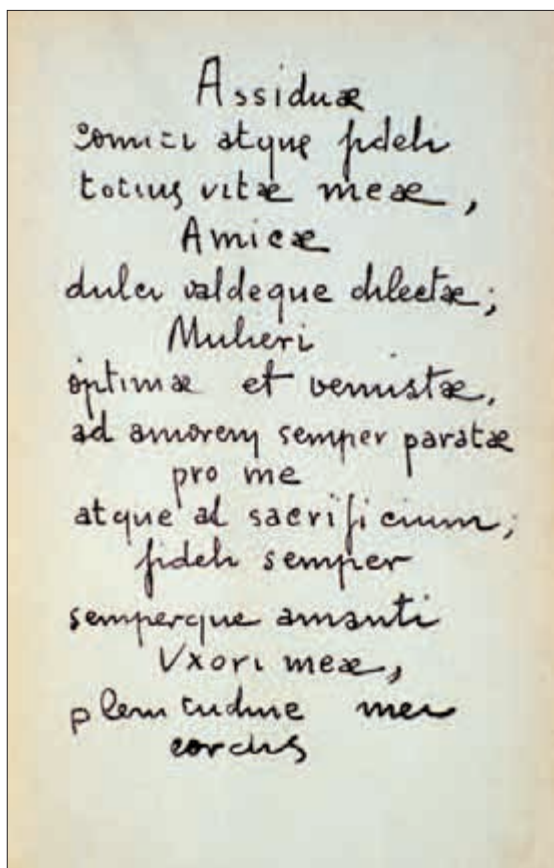 Assiduæ
comiti atque fideli
totius vitæ meæ,
Amicæ
dulci valdeque dilectæ;
Mulieri
optimæ et venustæ,
ad amorem semper paratæ
pro me
atque ad sacrificium;
fideli semper
semperque amanti
Vxori meæ,
plenitudine mei
cordis